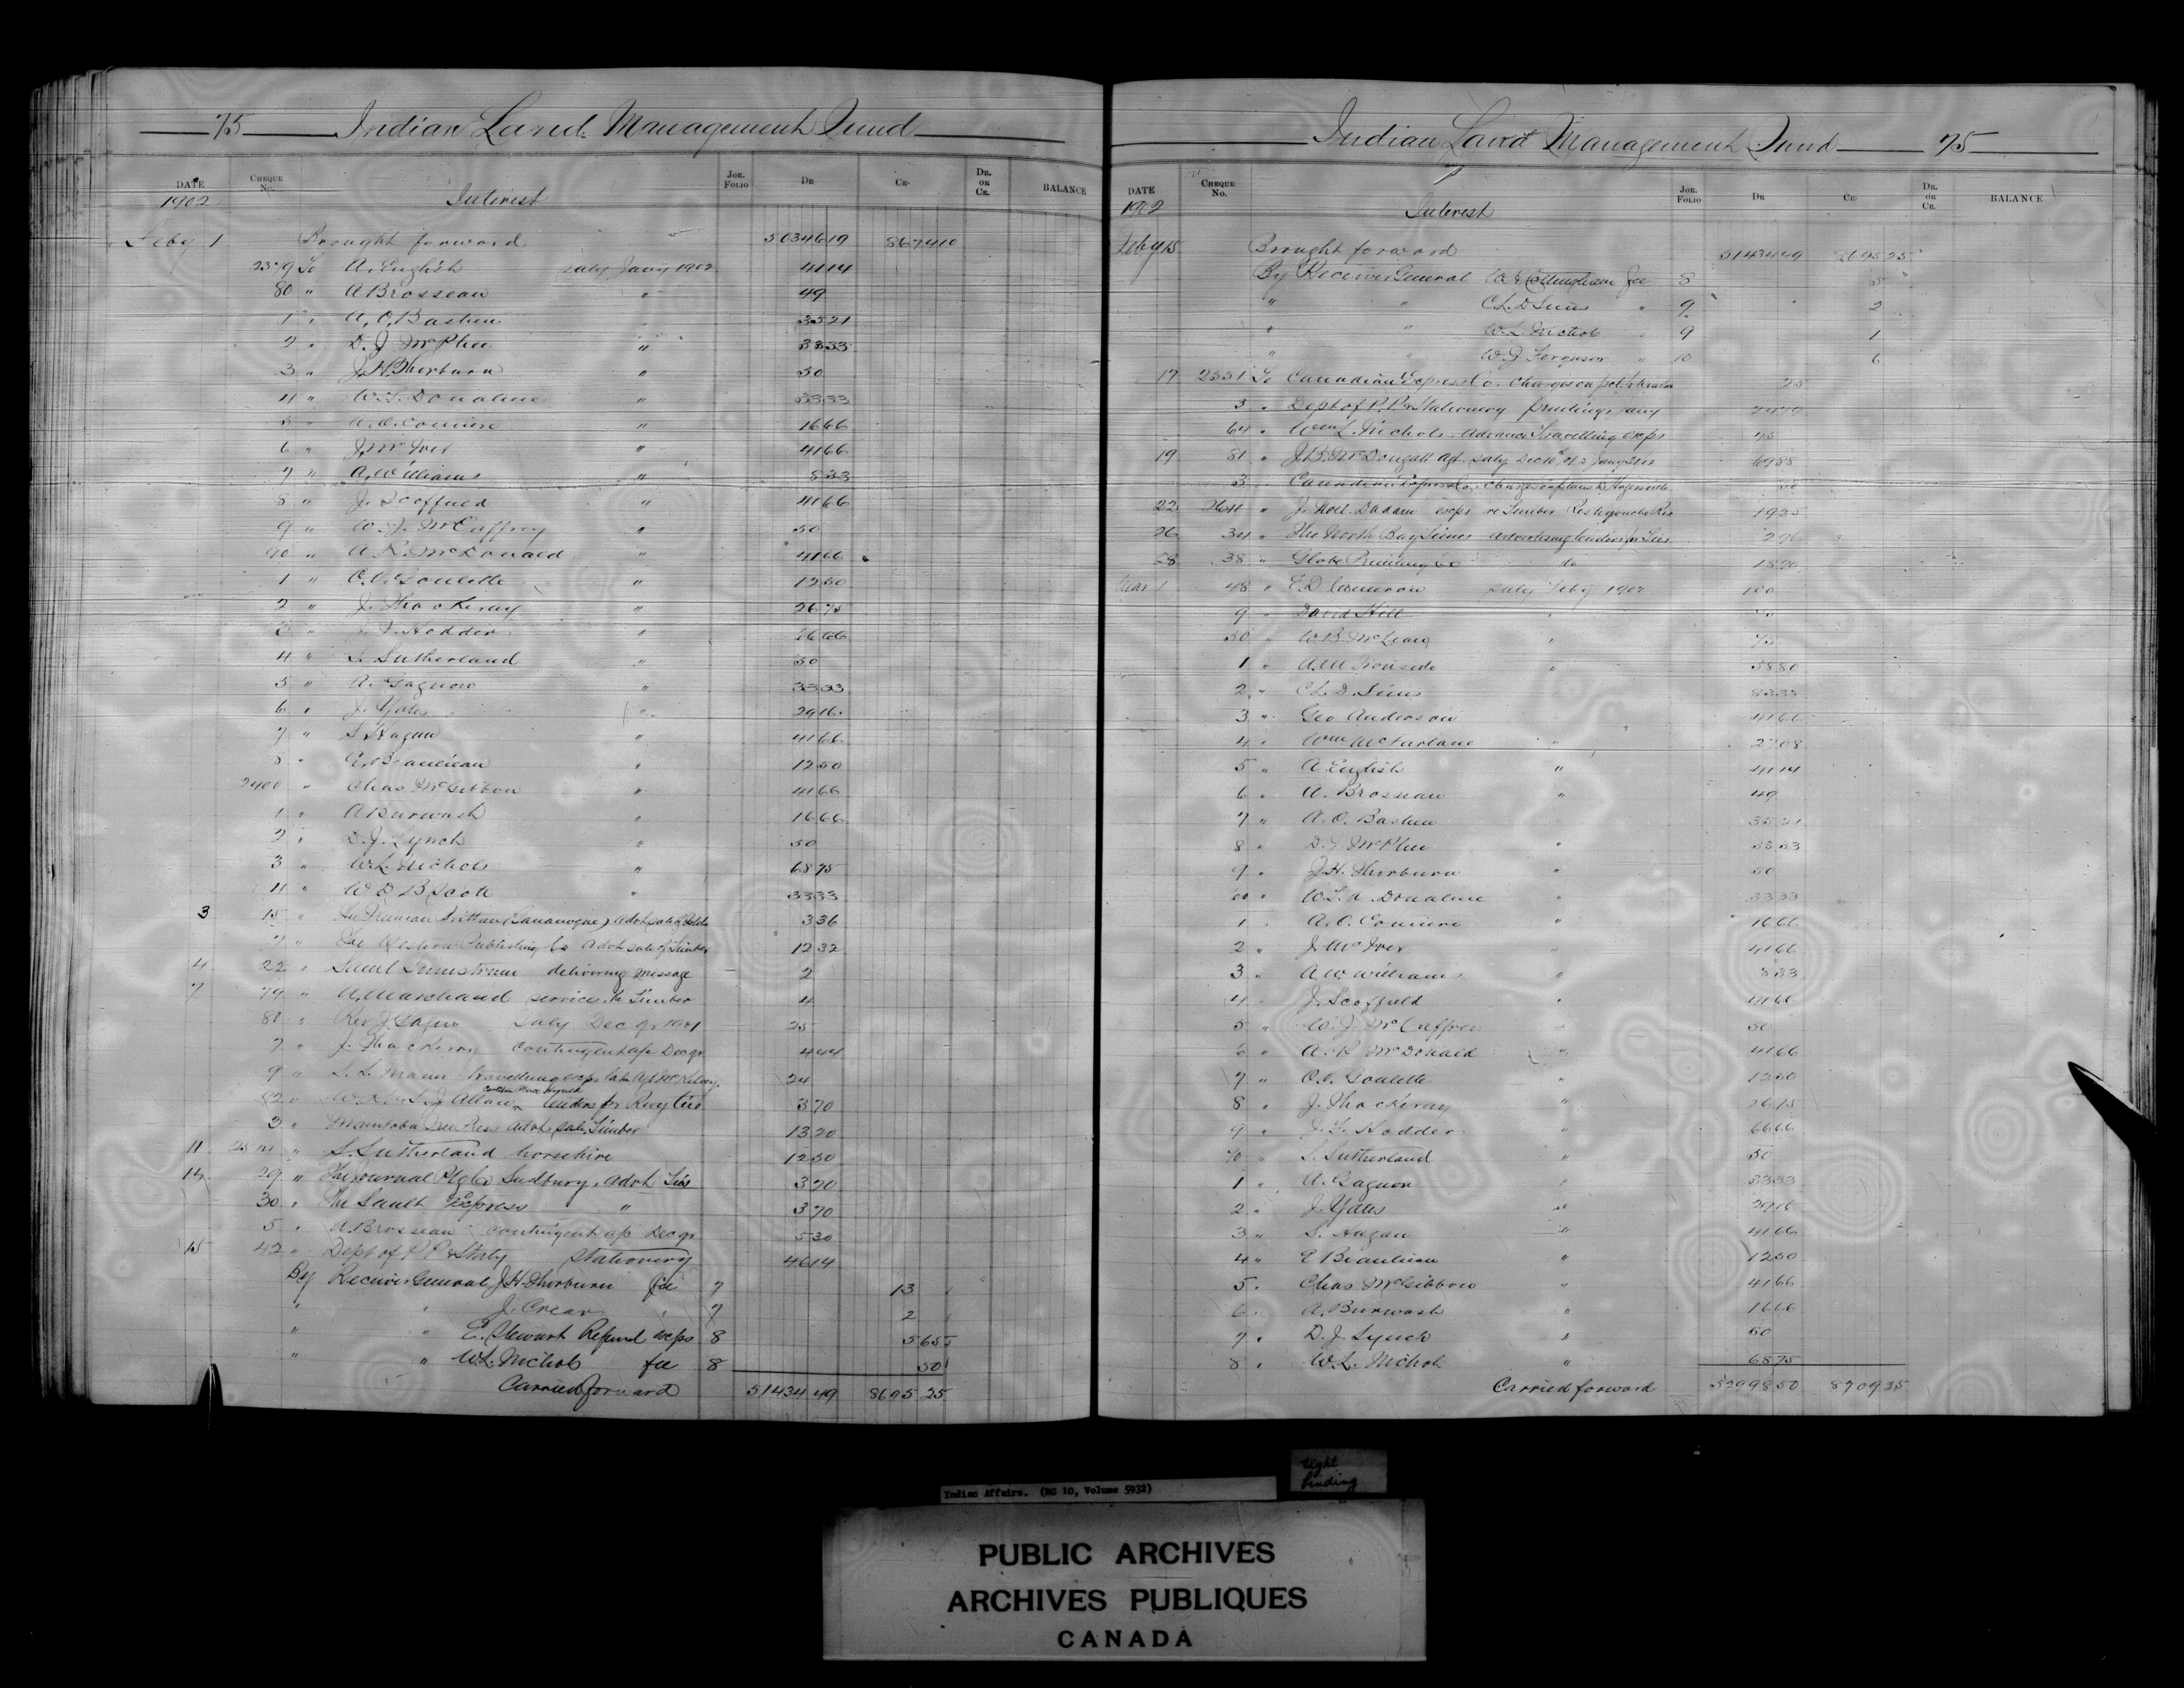 75 Indian Land Management Fund
DATE CHEQUE No. JOR. FOLIO DR CR DR. OR CR. BALANCE
1902 Interest
Feby 1 Brought forward 50346 19 8674 10
2379 To A. English salry Jany 1902 41 14
80 " A Brosseau " 49
1 " A. O. Bastien 35 21
2 " D. J. McPhee " 33 33
3 " J. H. Thorburn " 50
4 " W. S. Donahue " 33 33
5 " A. O. Comire " 16 66
6 " J. McIver " 41 66
7 " A. Williams " 8 33
8 " J. Scoffield " 41 66
9 " W. J. McCaffrey " 50
90 " A. R. McDonald " 41 66
1 " O. C. Goulette " 12 50
2 " J. Thackeray " 26 75
3 " J. T. Hodder " 66 66
4 " S. Sutherland " 50
5 " A. Gagnon " 33 33
6 " J. Yates " 29 16
7 " S. Hagan " 41 66
8 " E. Beaulieau " 12 50
2400 " Chas McGibbon " 41 66
1 " A Burwash " 16 66
2 " D. J. Lynch " 50
3 " W. L. Nichols " 68 75
4 " W D B Scott " 33 33
3 15 " Freeman Britton (Gananoque) advt sale of 3 36
7 " The Western Publishing Co advt sale of Timber 12 32
4 22 " delivering message 2
7 79 " A. Marchand service re Timber 4
80 " Rev J. salry Dec qr 1901 25
7 " J. Thackeray contingent a/c Dec qr 4 44
9 " S. L. Mann travelling exps late Agt McKelvey 24
82 " W. H. & S. J. Allan tenders for Reny ties 3 70
3 " Manitoba Free Press advt sale Timber 13 20
11 25 " S. Sutherland horsehire 12 50
14 29 " The Journal Ptg Co Sudbury, advt Ties 3 70
30 " The Sault Express " 3 70
5 " A Brosseau contingent a/c Dec qr 5 30
15 42 " Dept of P. P. & Staty Stationery 46 14
By Receiver General J. H. Thorburn fee 7 13
" " J. Crear " 7 2
" " E. Stewart Refund exps 8 5 65
" " W. L. Nichols fee 8 50
Carried forward 51434 49 8695 25
Indian Land Management Fund 75
DATE CHEQUE No. JOR. FOLIO DR CR DR. OR CR. BALANCE
1902 Interest
Feby 15 Brought forward 51434 49 8695 25
By Receiver General Cottingham fee 8 5
" " C. L. D. Sims " 9 2
" " W. L. Nichols " 9 1
" " W. J. Ferguson " 10 6
17 2551 To Canadian Express Co. charges on 25
3 " Dept of P. P. & Stationery printing
64 " Wm L. Nichols advance travelling exps 75
19 81 " J. B. McDougall Agt. salry Dec 69 88
3 " Canadian Express Co. charges on plans to Hagersville
22 2611 " J. Noel Dadam exps re Timber Restigouche Res 19 25
26 34 " The North Bay Times advertising tenders for Ties
28 38 " Globe Printing Co do 18 20
Mar 1 48 " E. D. Cameron salry Feby 1902 100
9 " David Hill " 50
50 " W. B. McLean " 75
1 " A. M. Ironside " 58 80
2 " C. L. D. Sims 83 33
3 " Geo Anderson 41 66
4 " Wm McFarlane " 27 08
5 " A English " 41 14
6 " A. Brosseau " 49
7 " A. O. Bastien " 35 21
8 " D. J. McPhee " 33 33
9 " J. H. Thorburn " 50
60 " W. S. A. Donahue " 33 33
1 " A. O. Comire " 16 66
2 " J. McIver " 41 66
3 " A W. Williams " 8 33
4 " J. Scoffield " 41 66
5 " W. J. McCaffrey " 50
6 " A. R McDonald " 41 66
7 " O. C. Goulette " 12 50
8 " J. Thackeray " 26 75
9 " J. T. Hodder " 66 66
70 " S. Sutherland " 50
1 " A. Gagnon " 33 33
2 " J. Yates " 29 16
3 " S. Hagan " 41 66
4 " E Beaulieau " 12 50
5 " Chas McGibbon " 41 66
6 " A. Burwash " 16 66
7 " D. J. Lynch " 50
8 " W. L. Nichols " 68 75
Carried forward 52998 50 8709 25
Indian Affairs. (RG 10, Volume 5932)
tight binding
PUBLIC ARCHIVES
ARCHIVES PUBLIQUES
CANADA